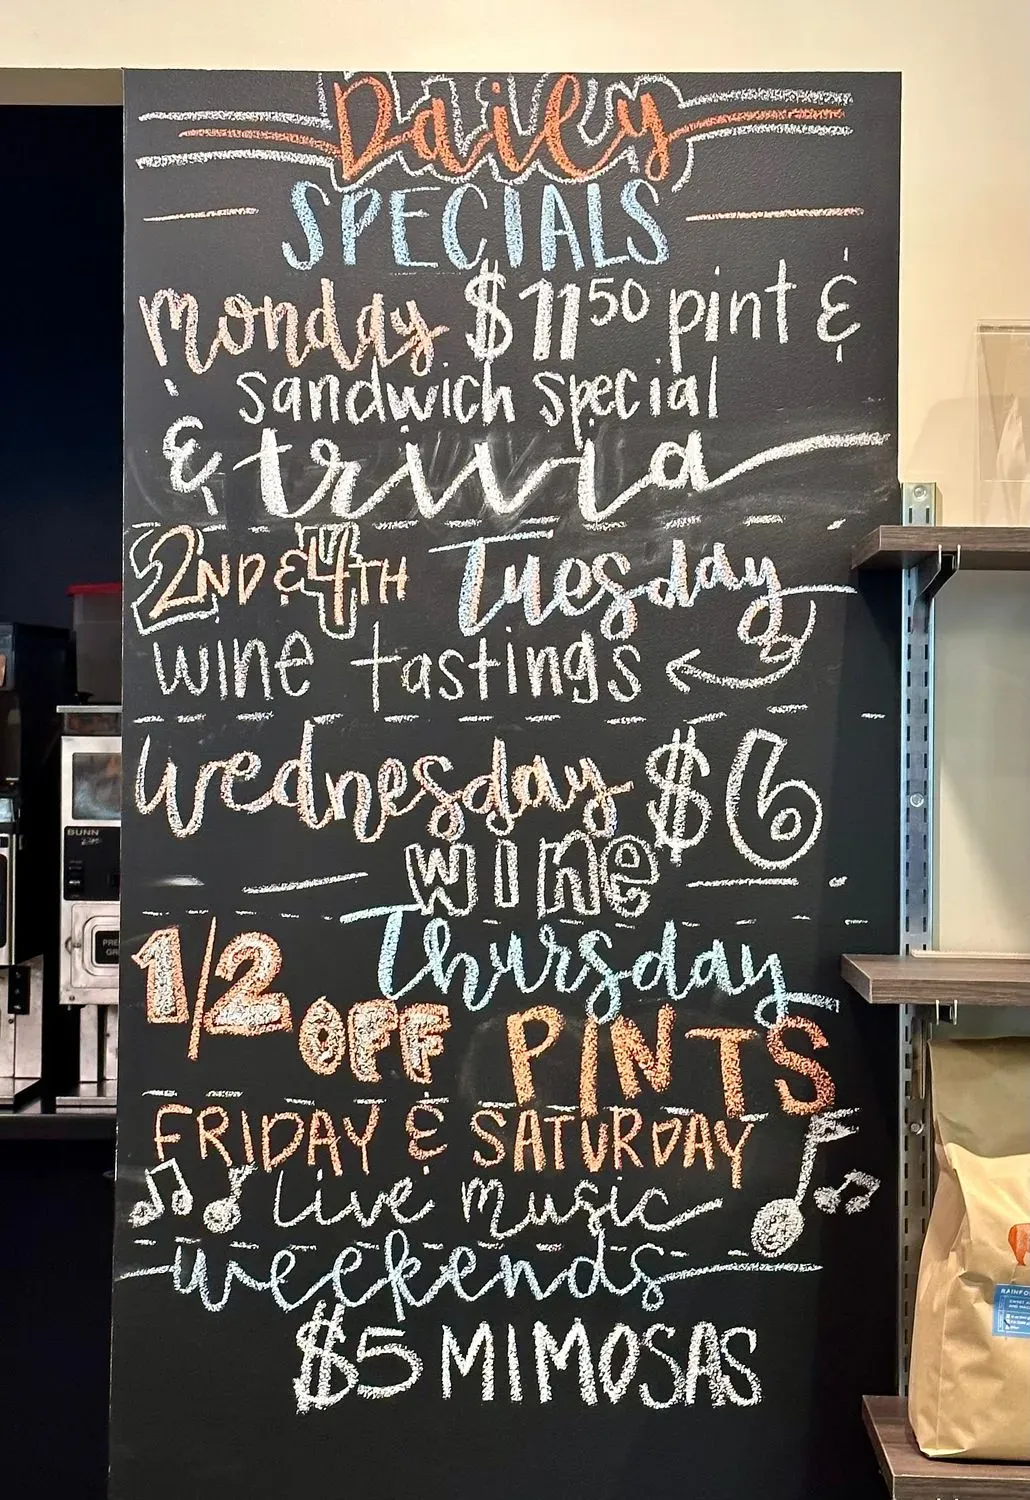 Daily
SPECIALS
monday $11 50 pint &
sandwich special
& trivia
2ND & 4TH Tuesday
wine tastings
Wednesday $6
wine
Thursday
1/2 OFF PINTS
FRIDAY & SATURDAY
Live music
weekends
$5 MIMOSAS
BUNN